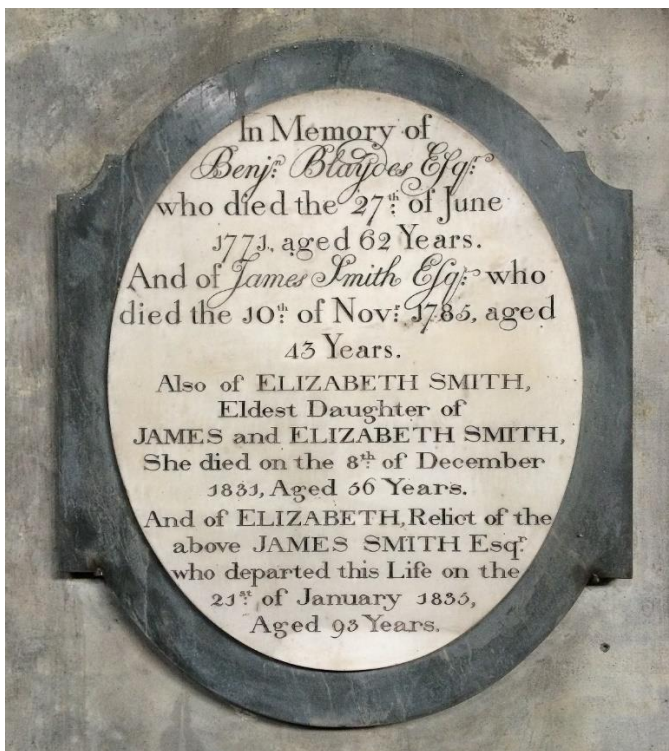 In Memory of
Benjn. Blaydes Esqr.
who died the 27th. of June
1771, aged 62 Years.
And of James Smith Esqr. who
died the 10th. of Novr. 1785, aged
43 Years.
Also of ELIZABETH SMITH,
Eldest Daughter of
JAMES and ELIZABETH SMITH,
She died on the 8th. of December
1831, Aged 56 Years.
And of ELIZABETH, Relict of the
above JAMES SMITH Esqr.
who departed this Life on the
21st. of January 1835,
Aged 93 Years.